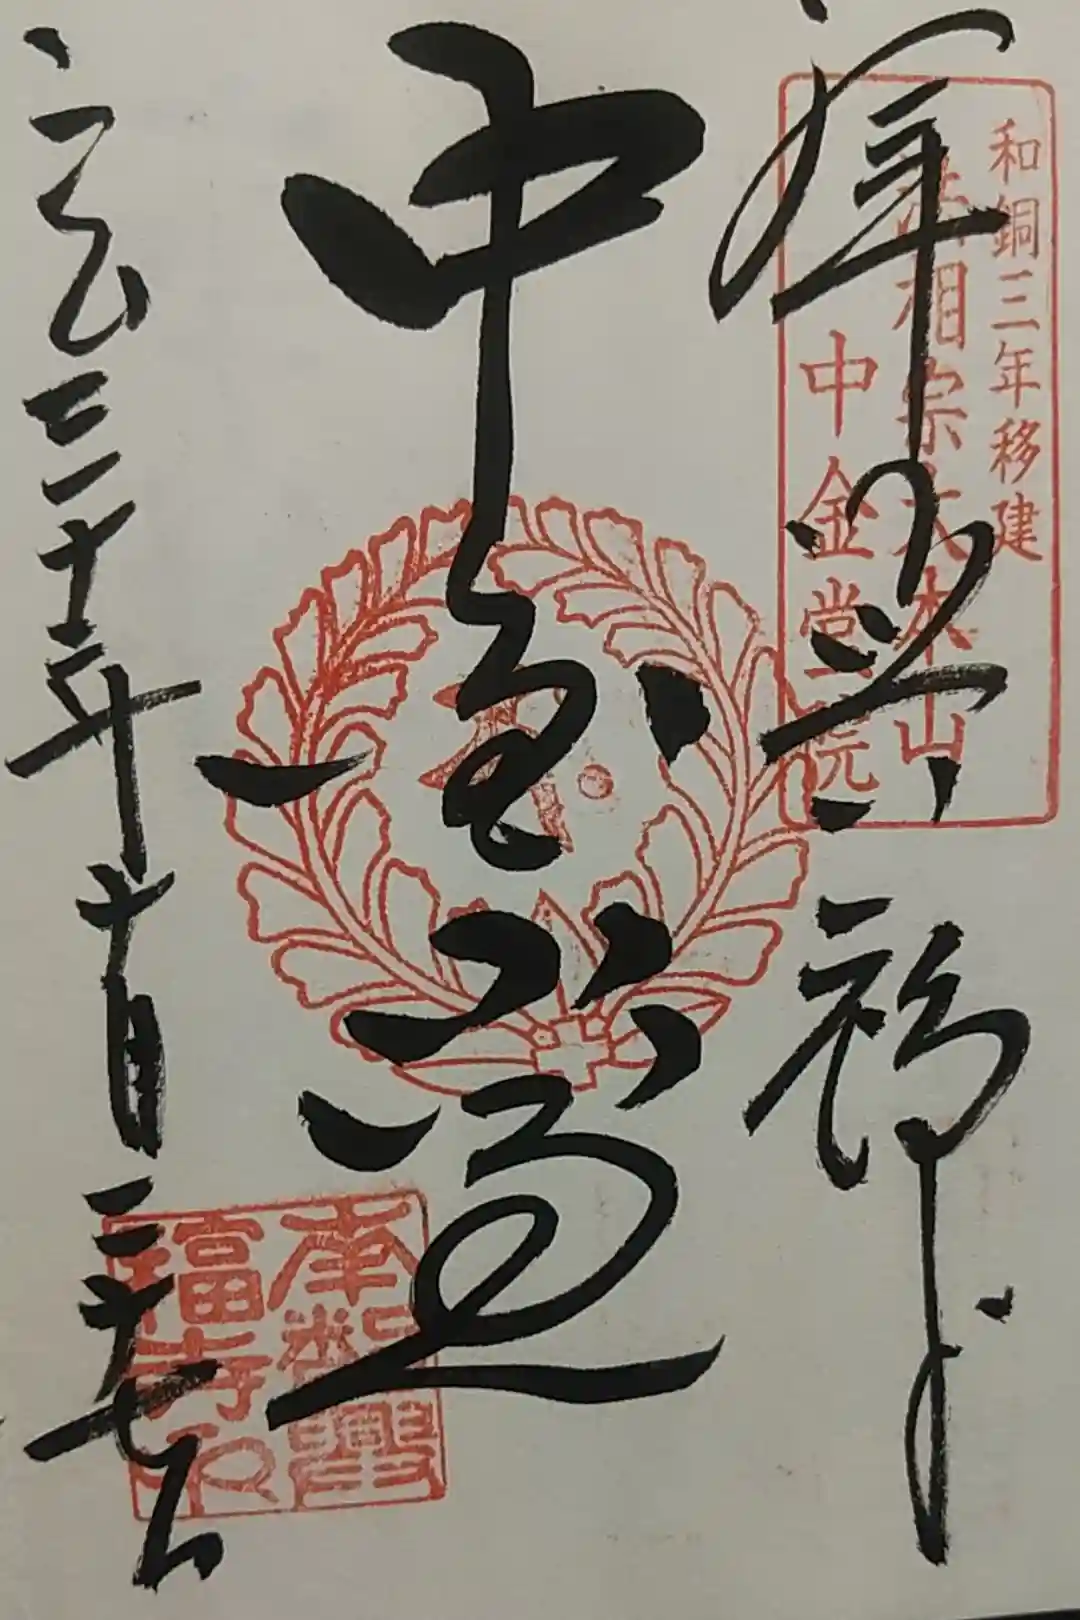 和銅三年移建
法相宗大本山
中金堂院
拝 興福寺
中金堂
平成三十年十月二十七日
南都興
福寺印